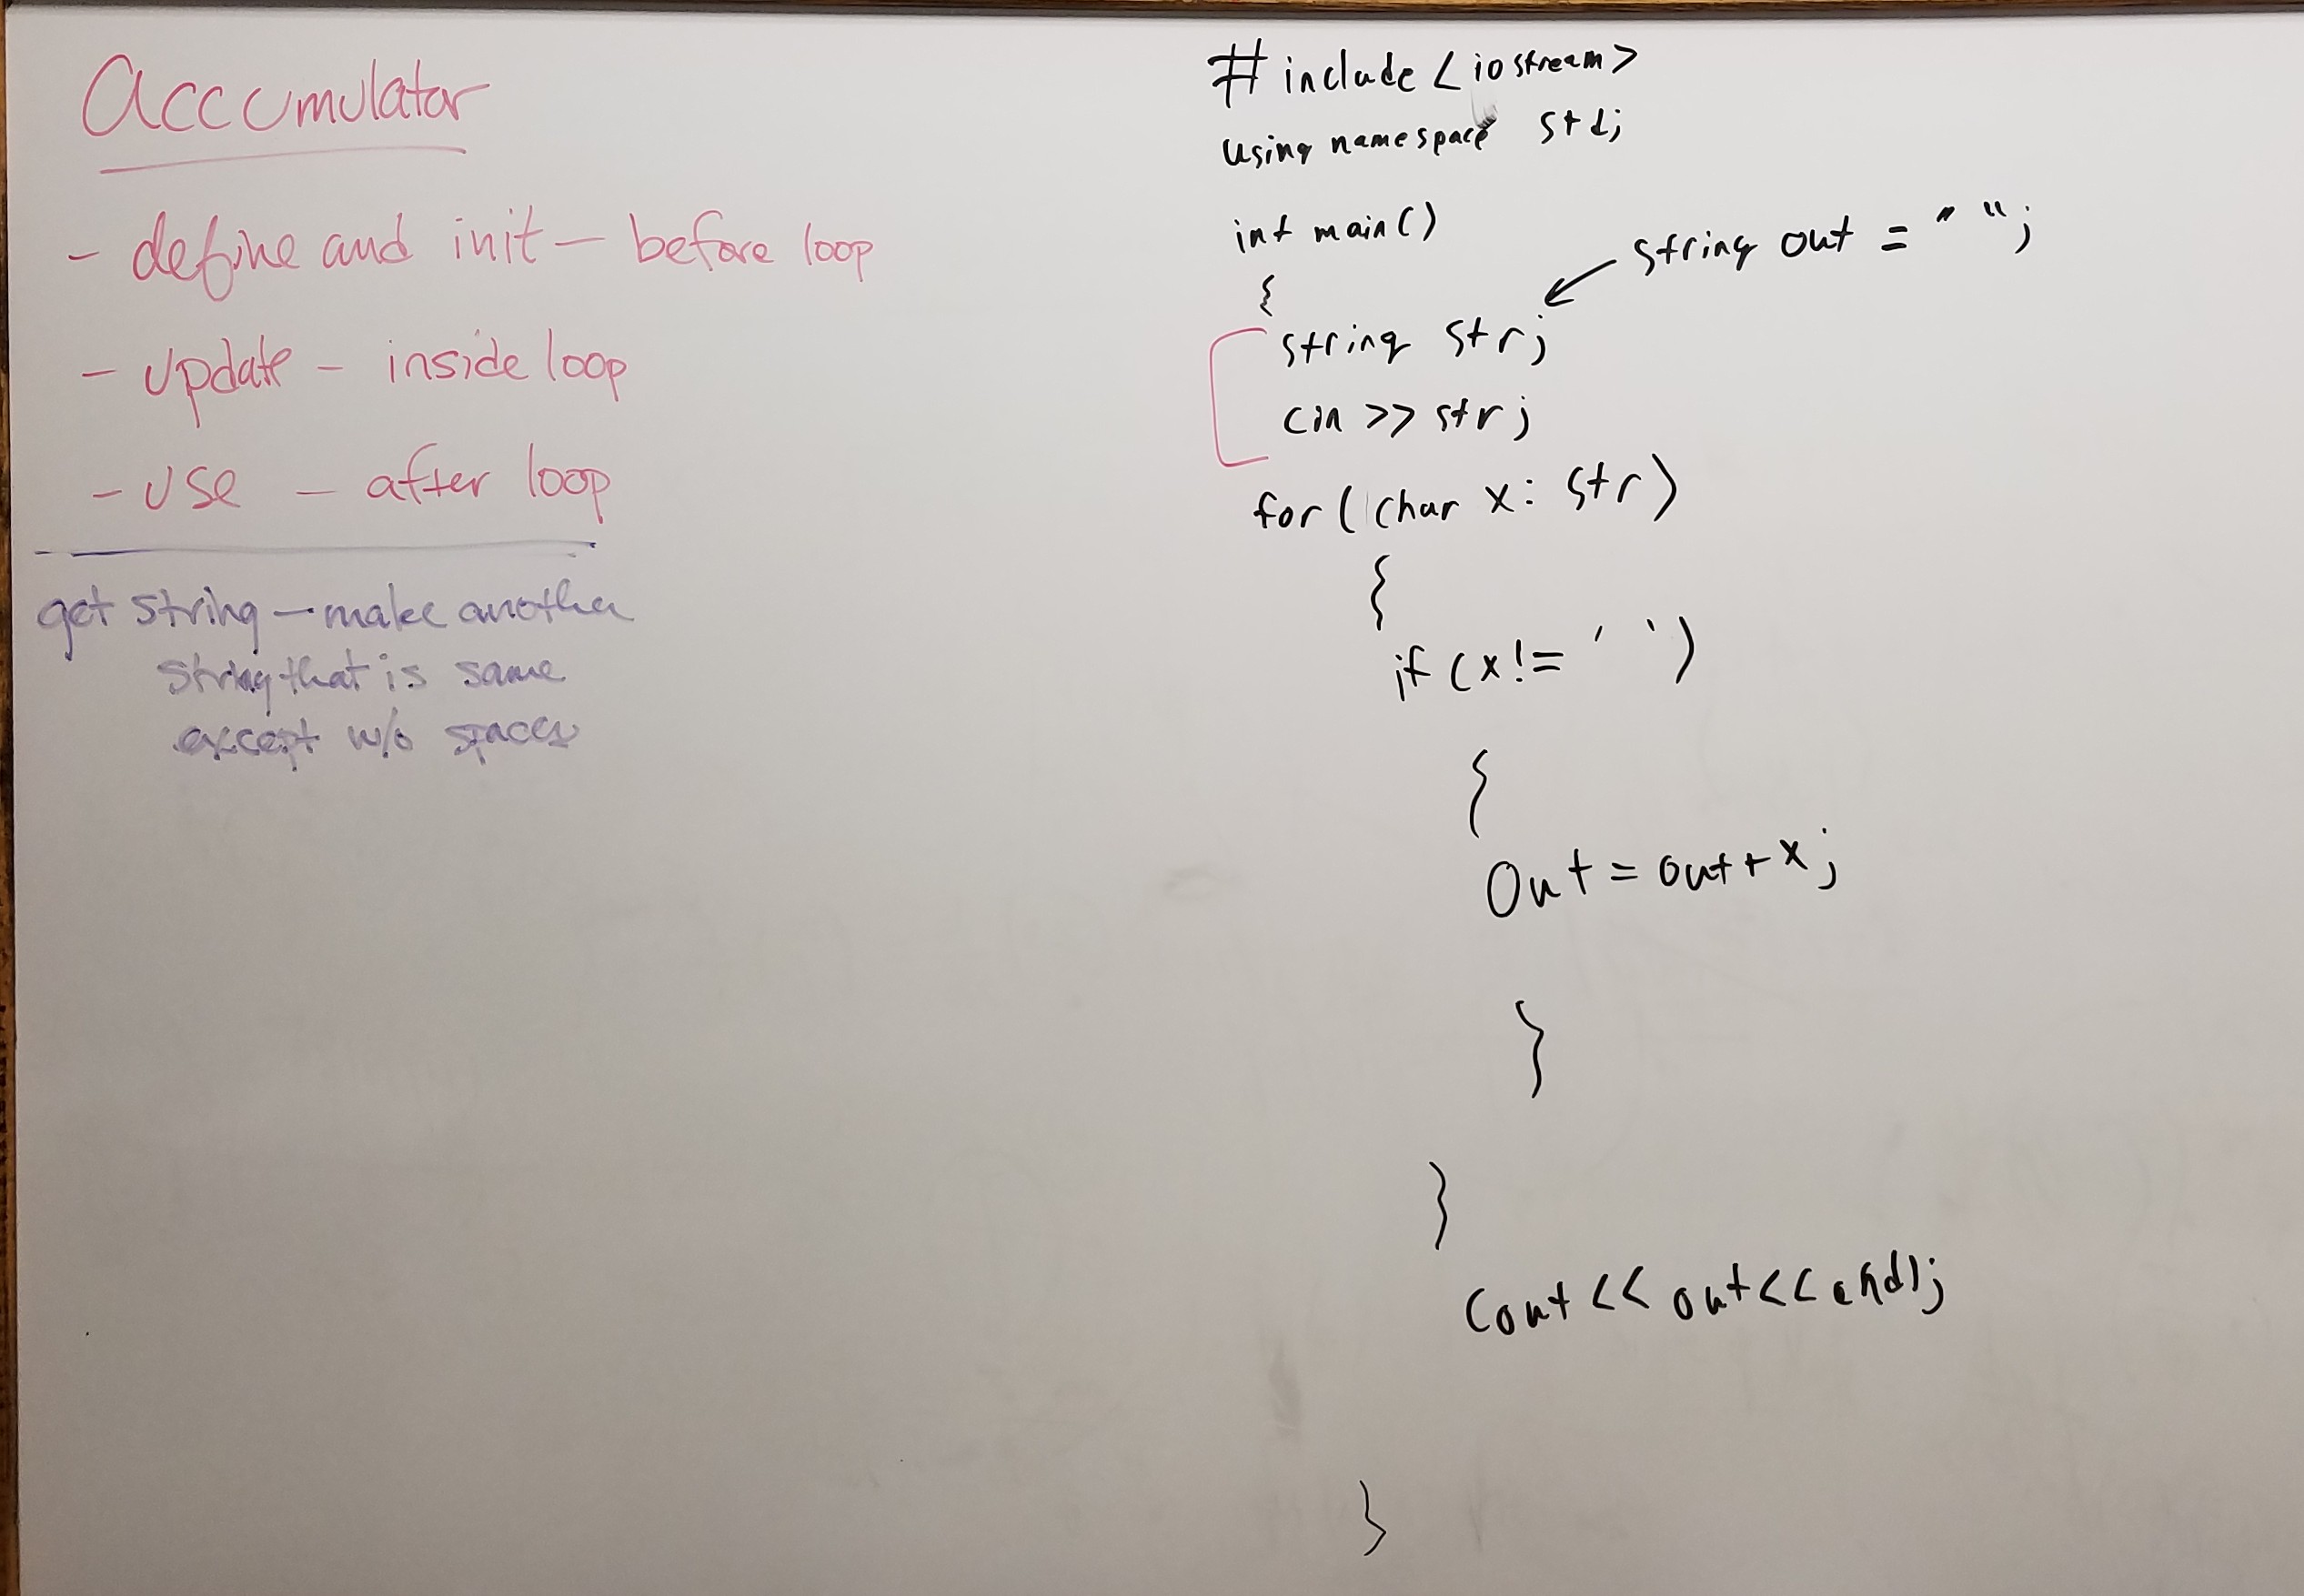 Accumulator
- define and init - before loop
- update - inside loop
- use - after loop
get string - make another
string that is same
except w/o spaces
#include <iostream>
using namespace std;
int main()
string out = " ";
{
string str;
cin >> str;
for (char x: str)
{
if (x!= ' ')
{
Out = out + x;
}
}
Cout << out << endl;
}